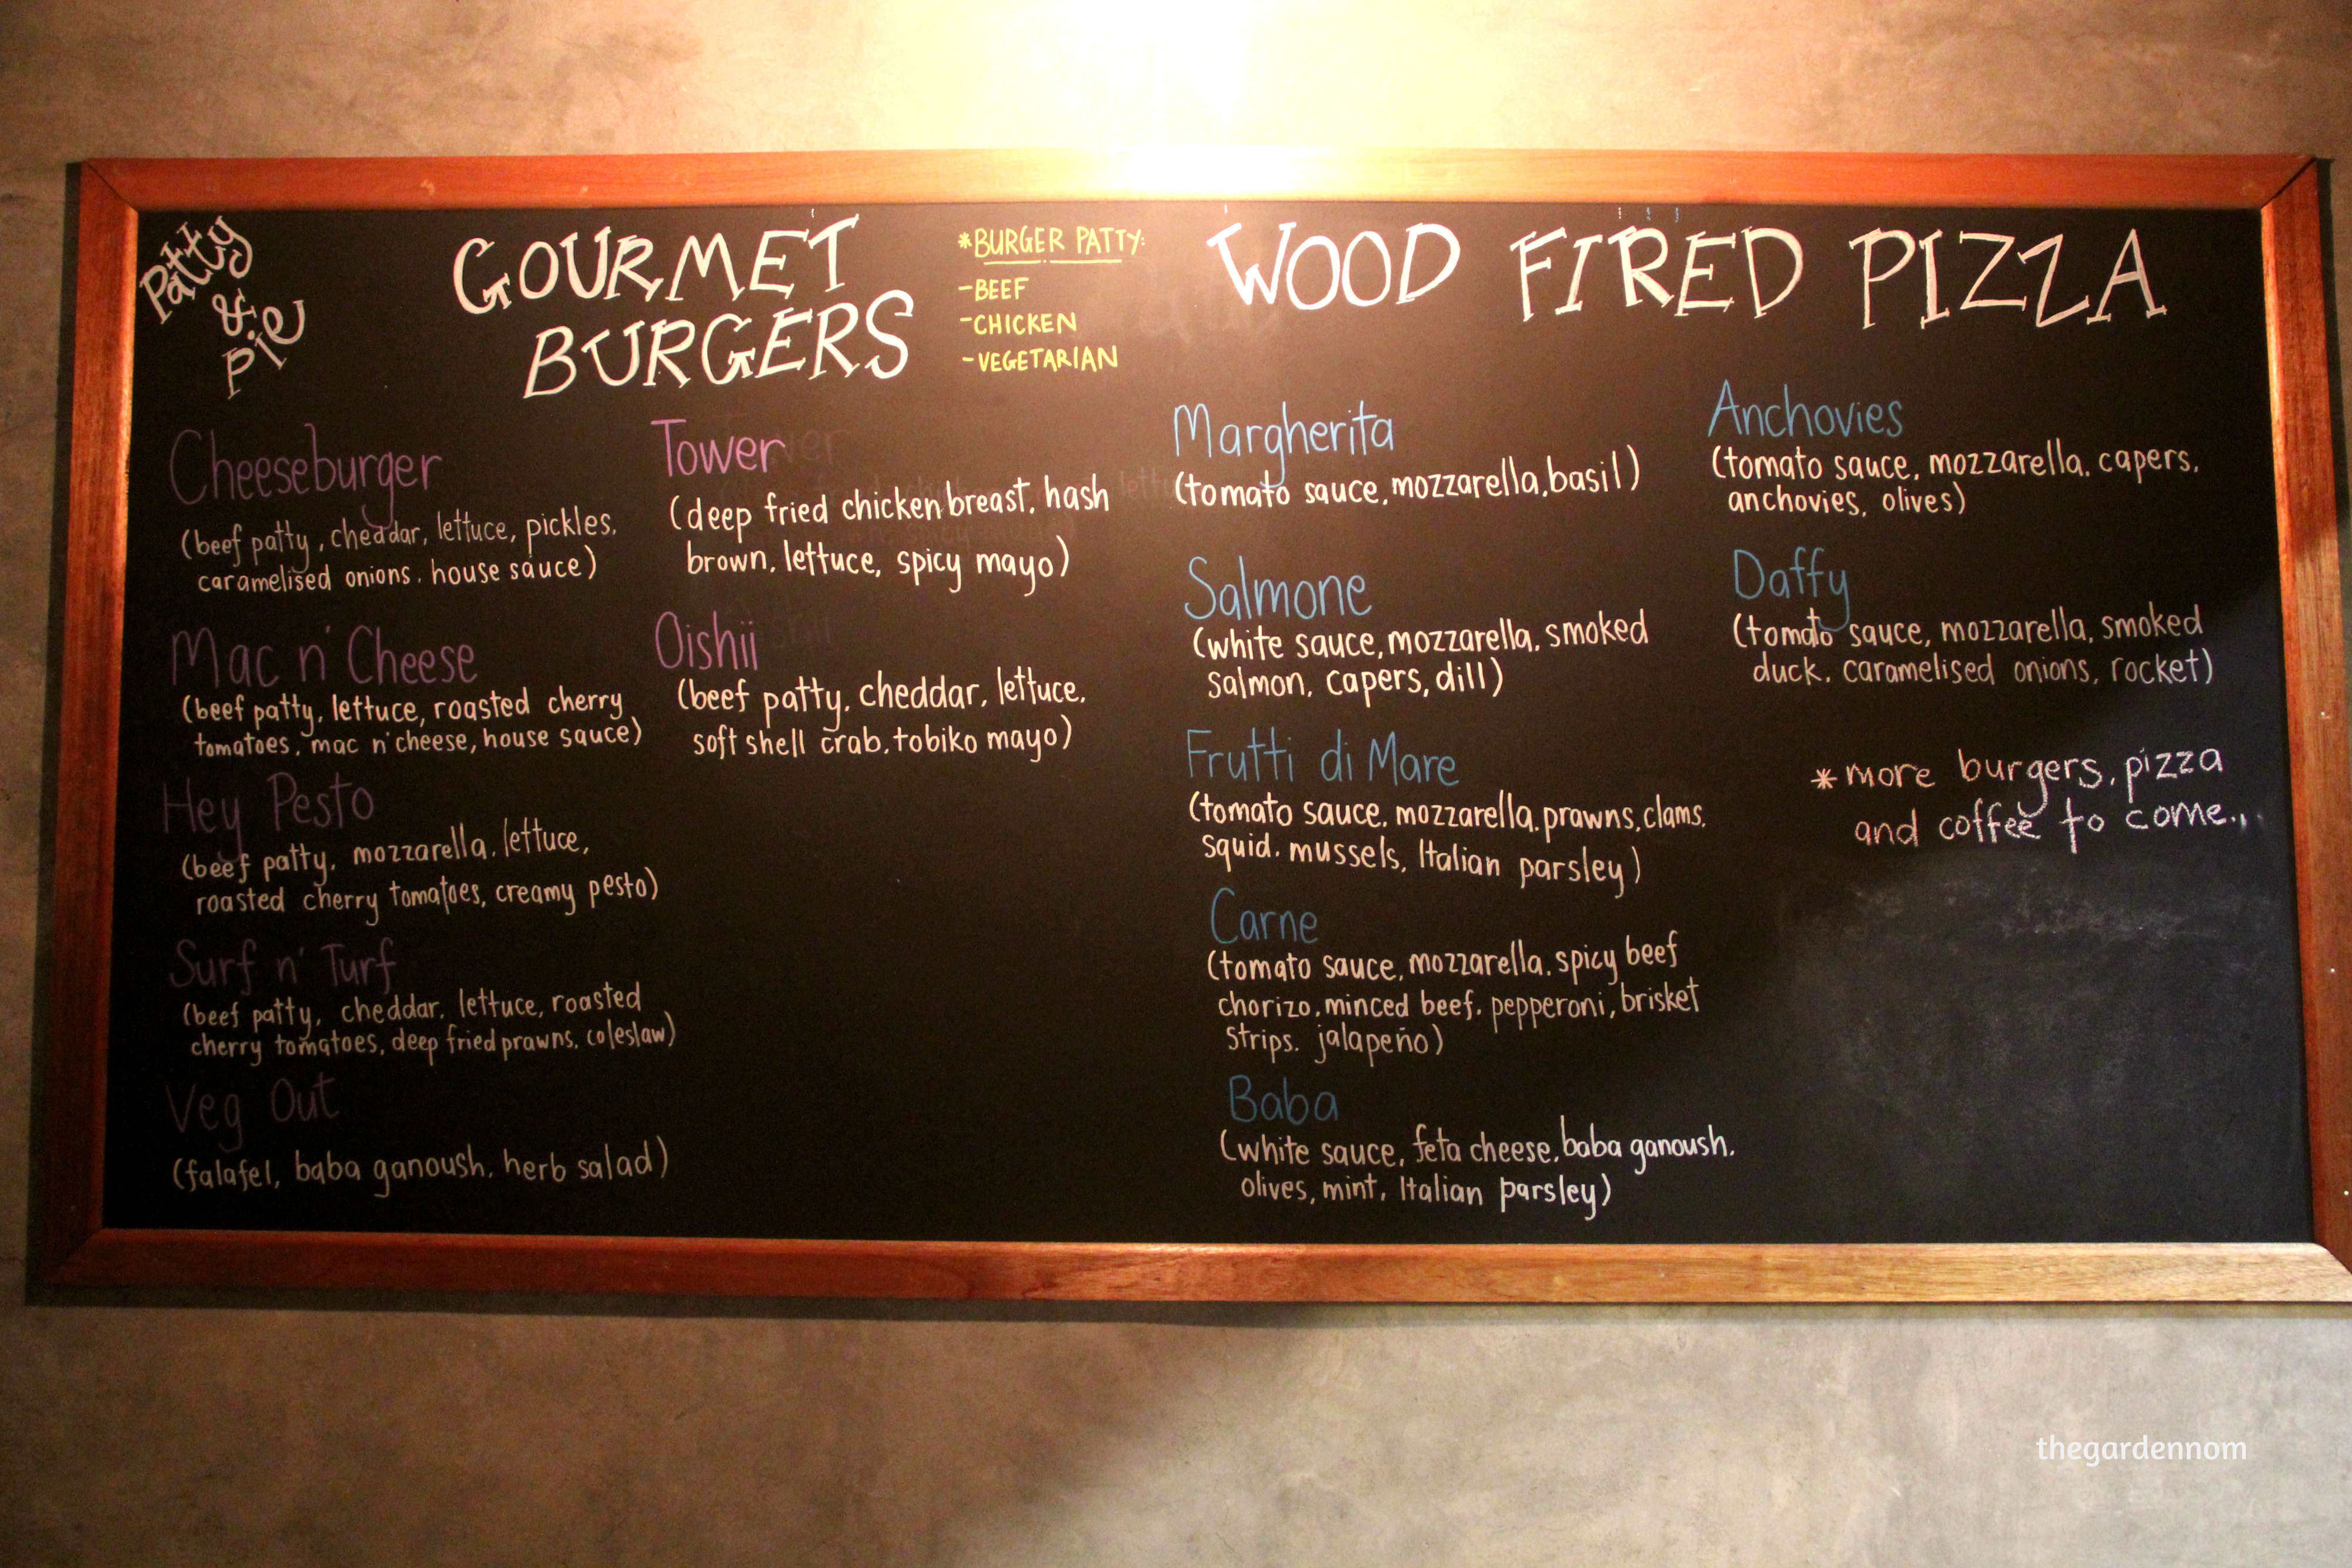 Patty
&
Pie
GOURMET
BURGERS
*BURGER PATTY:
-BEEF
-CHICKEN
-VEGETARIAN
Cheeseburger
(beef patty, cheddar, lettuce, pickles,
caramelised onions, house sauce)
Mac n' Cheese
(beef patty, lettuce, roasted cherry
tomatoes, mac n'cheese, house sauce)
Hey Pesto
(beef patty, mozzarella, lettuce,
roasted cherry tomatoes, creamy pesto)
Surf n' Turf
(beef patty, cheddar, lettuce, roasted
cherry tomatoes, deep fried prawns, coleslaw)
Veg Out
(falafel, baba ganoush, herb salad)
Tower
(deep fried chicken breast, hash
brown, lettuce, spicy mayo)
Oishii
(beef patty, cheddar, lettuce,
soft shell crab, tobiko mayo)
WOOD FIRED PIZZA
Margherita
(tomato sauce, mozzarella, basil)
Salmone
(white sauce, mozzarella, smoked
salmon, capers, dill)
Frutti di Mare
(tomato sauce, mozzarella, prawns, clams,
squid, mussels, Italian parsley)
Carne
(tomato sauce, mozzarella, spicy beef
chorizo, minced beef, pepperoni, brisket
strips, jalapeño)
Baba
(white sauce, feta cheese, baba ganoush,
olives, mint, Italian parsley)
Anchovies
(tomato sauce, mozzarella, capers,
anchovies, olives)
Daffy
(tomato sauce, mozzarella, smoked
duck, caramelised onions, rocket)
*more burgers, pizza
and coffee to come...
thegardennom